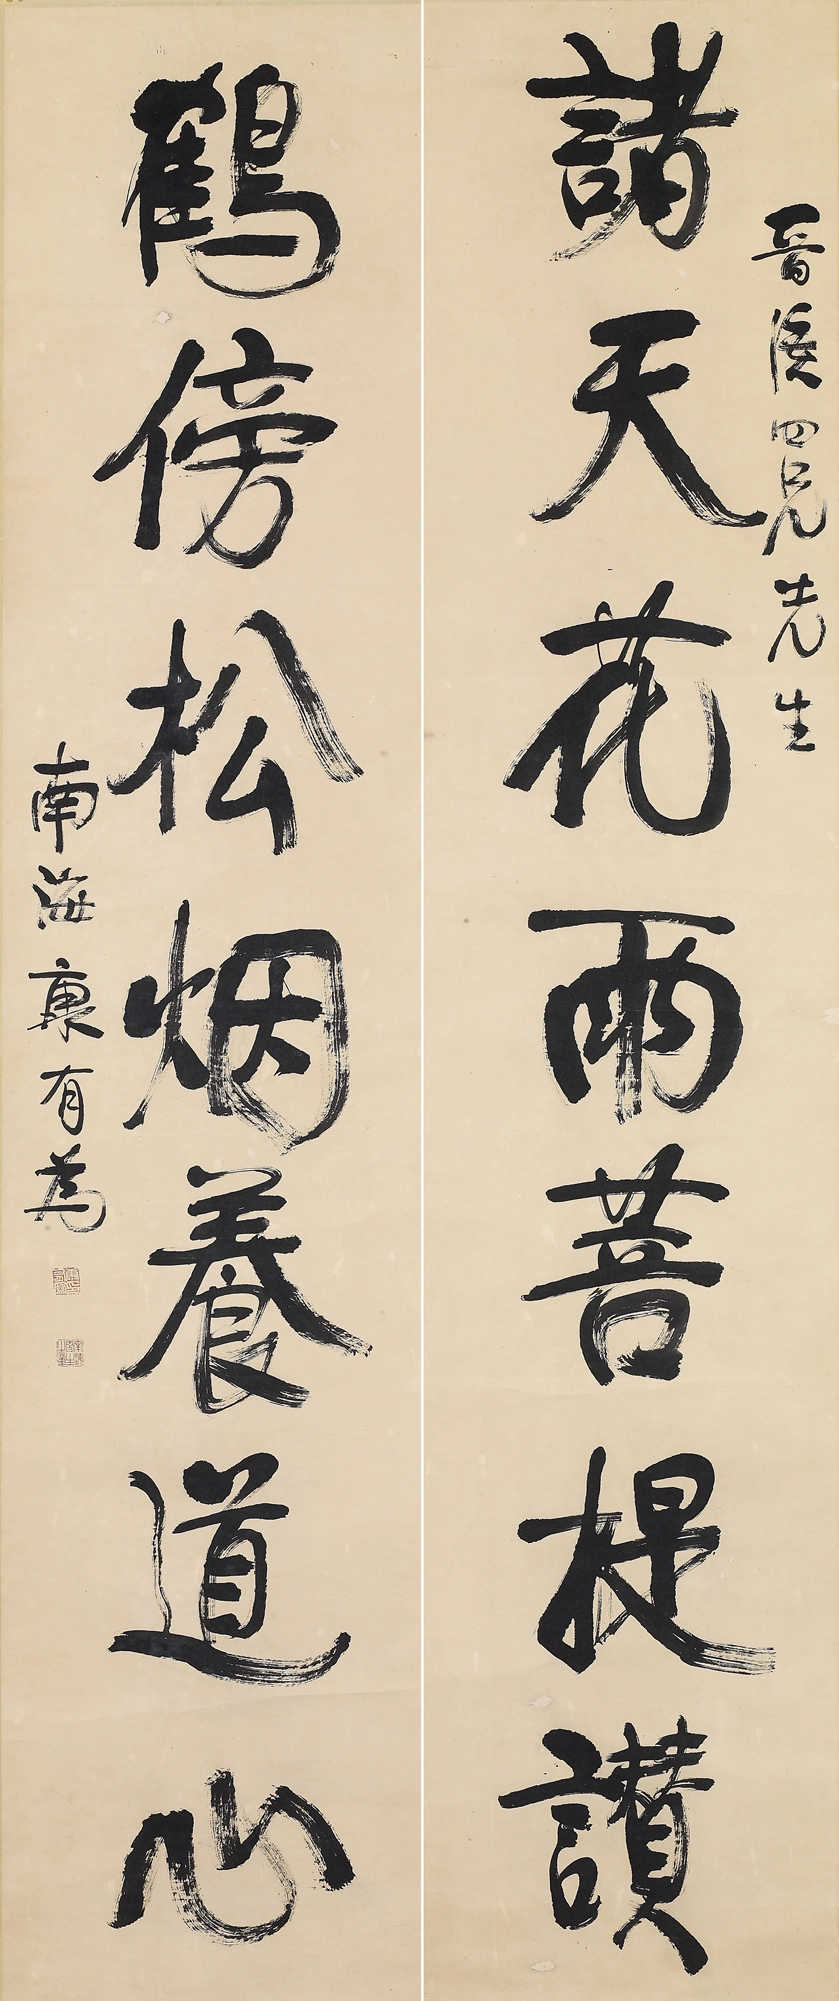 晉溪四兄先生
諸天花雨菩提讚
鶴傍松烟養道心
南海康有為